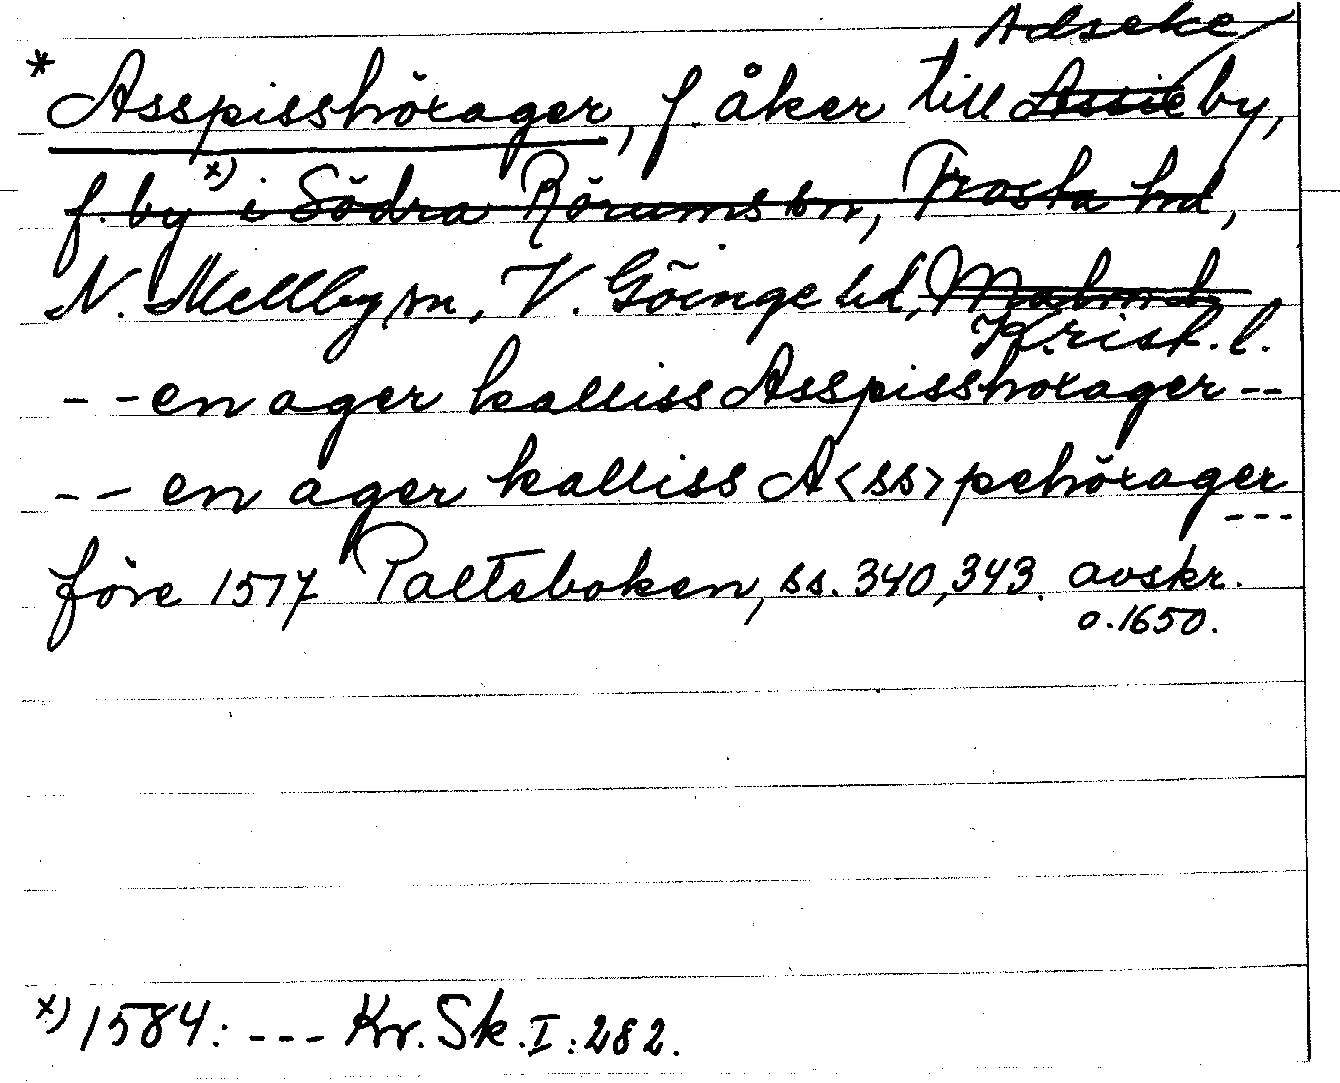 Adseke
* Asspisshöxager, f. åker till Assie by,
f. by x) i Södra Rörums sn, Frosta hd,
N. Mellby sn, V. Göinge hd, Malmöh
Krist. l.
- - en ager kalliss Asspisshoxager --
- - en ager kalliss A<ss>pehöxager
---
före 1517 Palteboken, ss. 340, 343. avskr.
o. 1650.
x) 1584: --- Kr. Sk. I: 282.